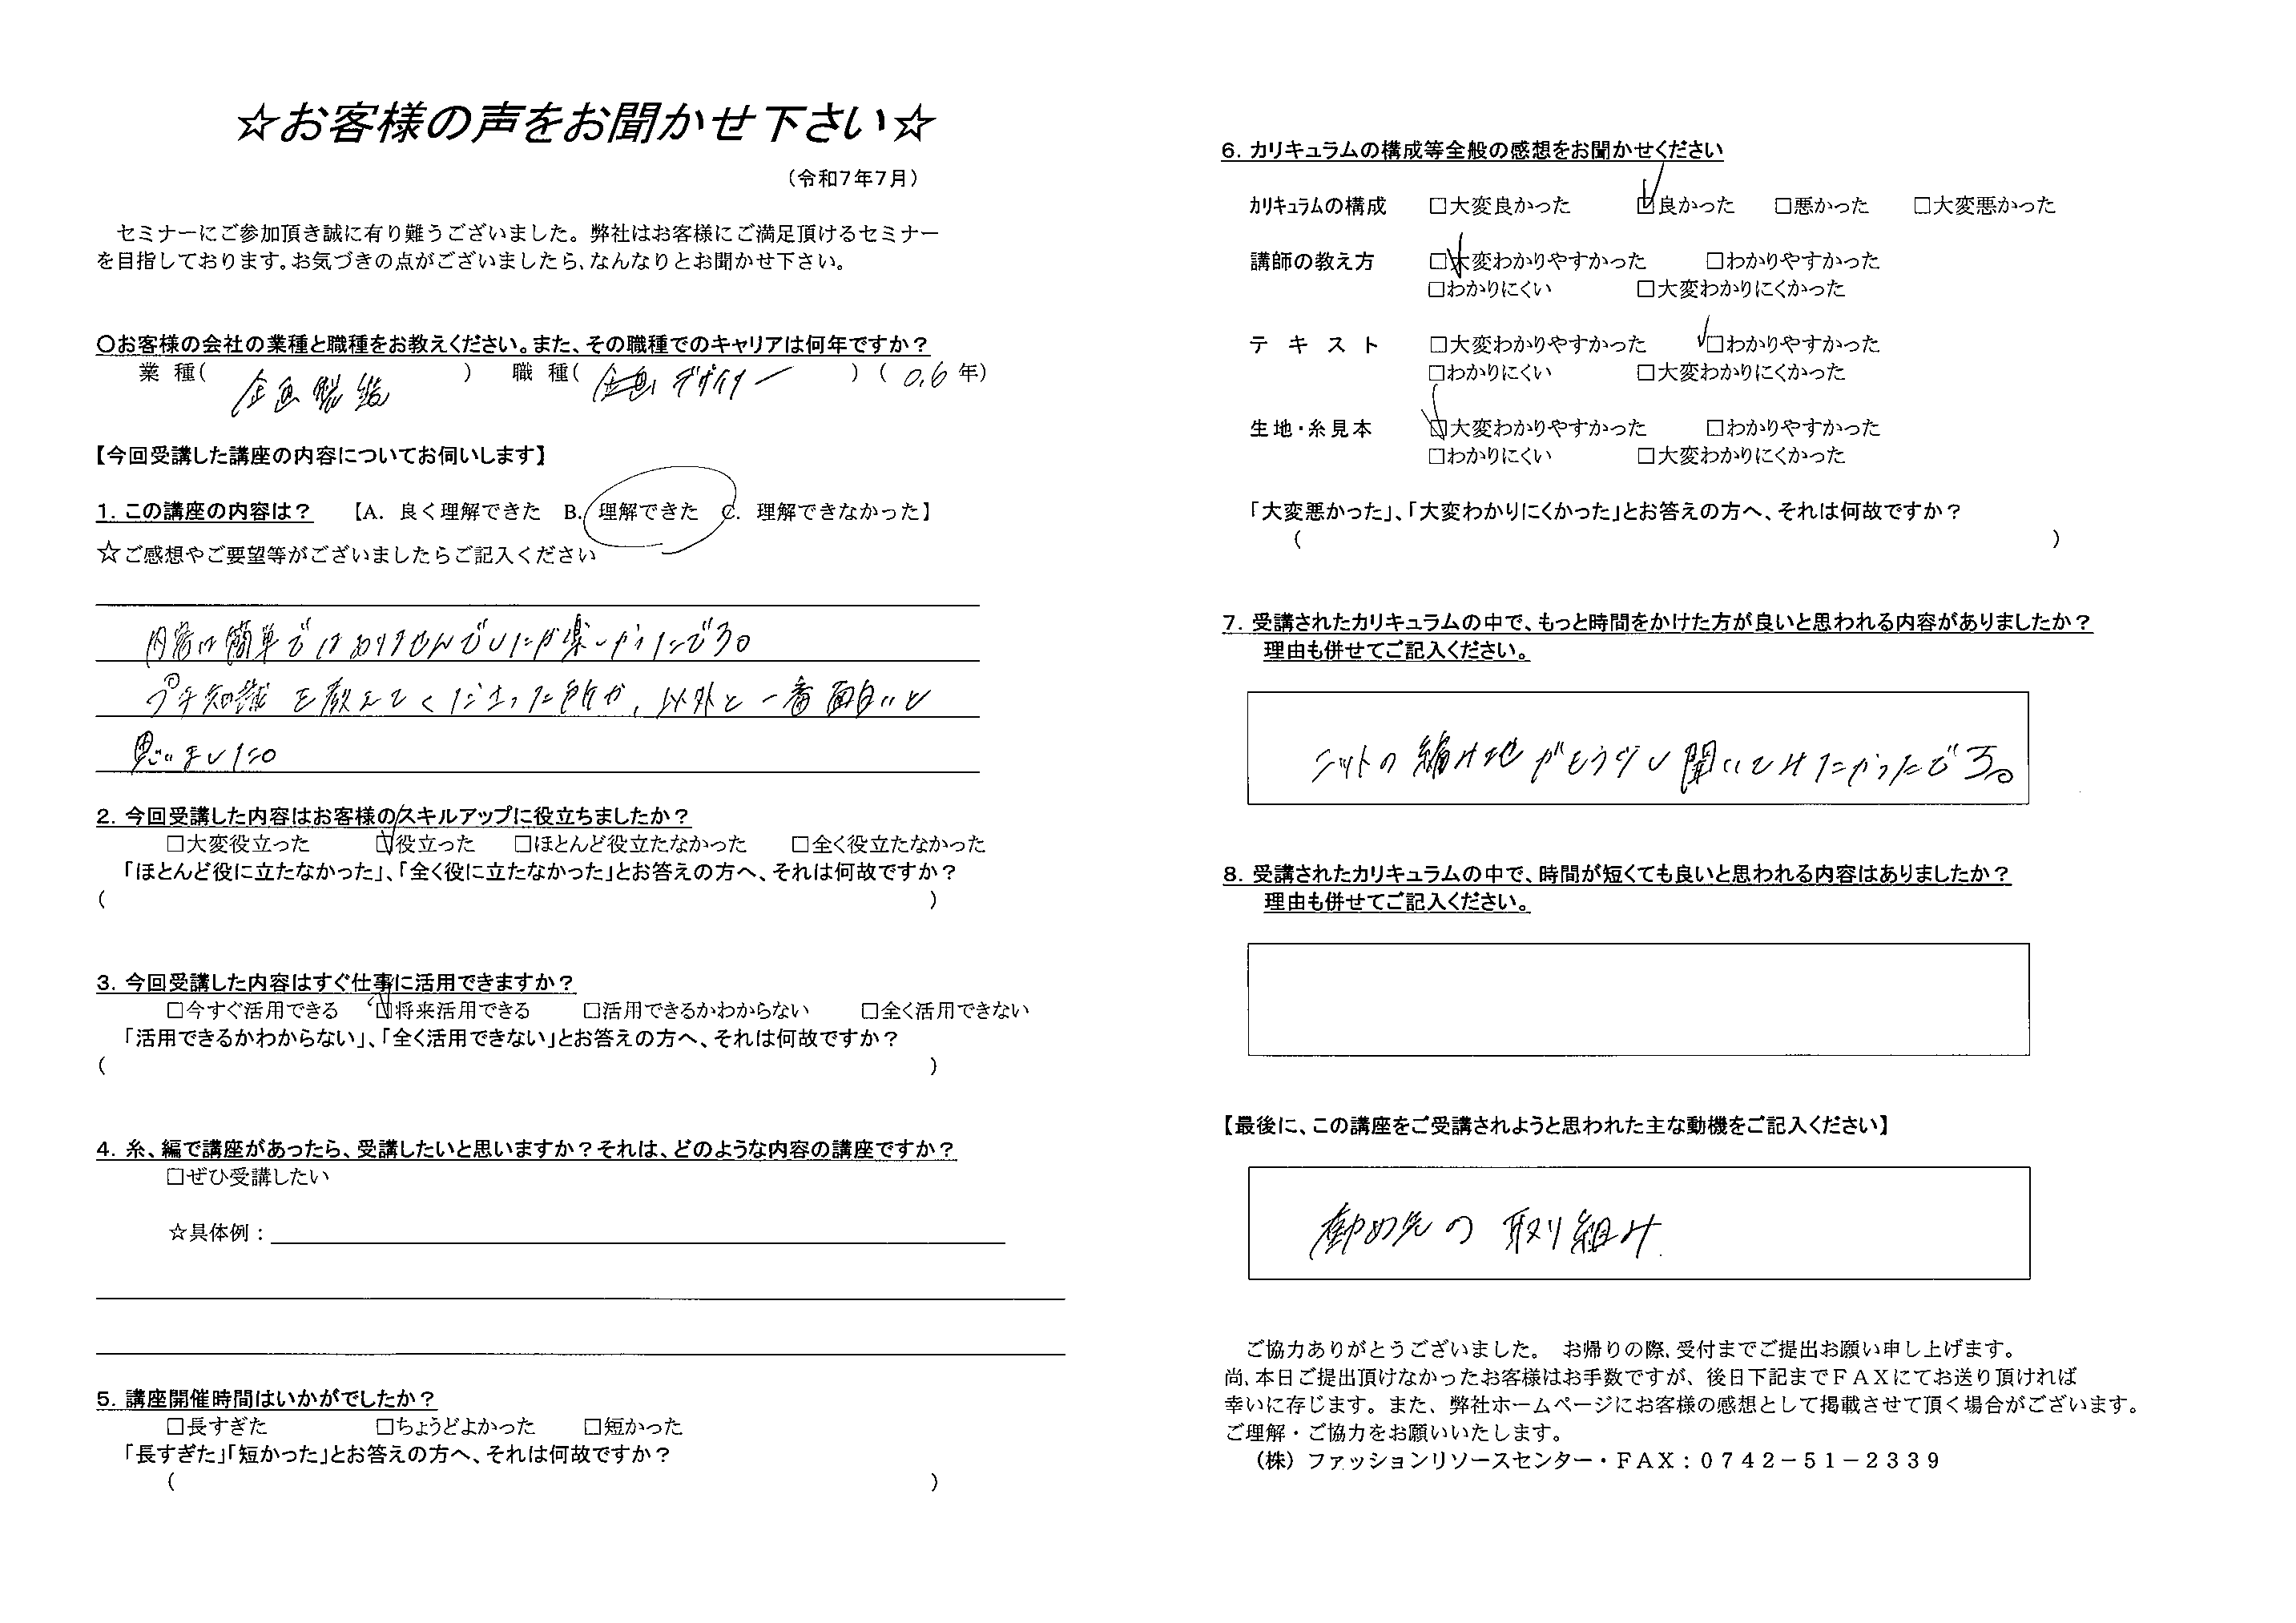 ☆お客様の声をお聞かせ下さい☆
（令和7年7月）
セミナーにご参加頂き誠に有り難うございました。弊社はお客様にご満足頂けるセミナー
を目指しております。お気づきの点がございましたら、なんなりとお聞かせ下さい。
〇お客様の会社の業種と職種をお教えください。また、その職種でのキャリアは何年ですか？
業 種( 企画製造 ) 職 種( 企画デザイナー ) ( 0.6 年)
【今回受講した講座の内容についてお伺いします】
1. この講座の内容は？ 【A. 良く理解できた B. 理解できた C. 理解できなかった】
☆ご感想やご要望等がございましたらご記入ください
内容は簡単ではありませんでしたが楽しかったです。
プチ知識を教えてくださった所が、以外と一番面白いと
思いました。
2. 今回受講した内容はお客様のスキルアップに役立ちましたか？
□大変役立った ☑役立った □ほとんど役立たなかった □全く役立たなかった
「ほとんど役に立たなかった」、「全く役に立たなかった」とお答えの方へ、それは何故ですか？
( )
3. 今回受講した内容はすぐ仕事に活用できますか？
□今すぐ活用できる ☑将来活用できる □活用できるかわからない □全く活用できない
「活用できるかわからない」、「全く活用できない」とお答えの方へ、それは何故ですか？
( )
4. 糸、編で講座があったら、受講したいと思いますか？それは、どのような内容の講座ですか？
□ぜひ受講したい
☆具体例：
5. 講座開催時間はいかがでしたか？
□長すぎた □ちょうどよかった □短かった
「長すぎた」「短かった」とお答えの方へ、それは何故ですか？
( )
6. カリキュラムの構成等全般の感想をお聞かせください
カリキュラムの構成 □大変良かった ☑良かった □悪かった □大変悪かった
講師の教え方 ☑大変わかりやすかった □わかりやすかった
□わかりにくい □大変わかりにくかった
テ キ ス ト □大変わかりやすかった ☑わかりやすかった
□わかりにくい □大変わかりにくかった
生地・糸見本 ☑大変わかりやすかった □わかりやすかった
□わかりにくい □大変わかりにくかった
「大変悪かった」、「大変わかりにくかった」とお答えの方へ、それは何故ですか？
( )
7. 受講されたカリキュラムの中で、もっと時間をかけた方が良いと思われる内容がありましたか？
理由も併せてご記入ください。
ニットの編み地がもう少し聞いてみたかったです。
8. 受講されたカリキュラムの中で、時間が短くても良いと思われる内容はありましたか？
理由も併せてご記入ください。
【最後に、この講座をご受講されようと思われた主な動機をご記入ください】
勤め先の取り組み
ご協力ありがとうございました。 お帰りの際、受付までご提出お願い申し上げます。
尚、本日ご提出頂けなかったお客様はお手数ですが、後日下記までＦＡＸにてお送り頂ければ
幸いに存じます。また、弊社ホームページにお客様の感想として掲載させて頂く場合がございます。
ご理解・ご協力をお願いいたします。
（株）ファッションリソースセンター・ＦＡＸ：０７４２－５１－２３３９